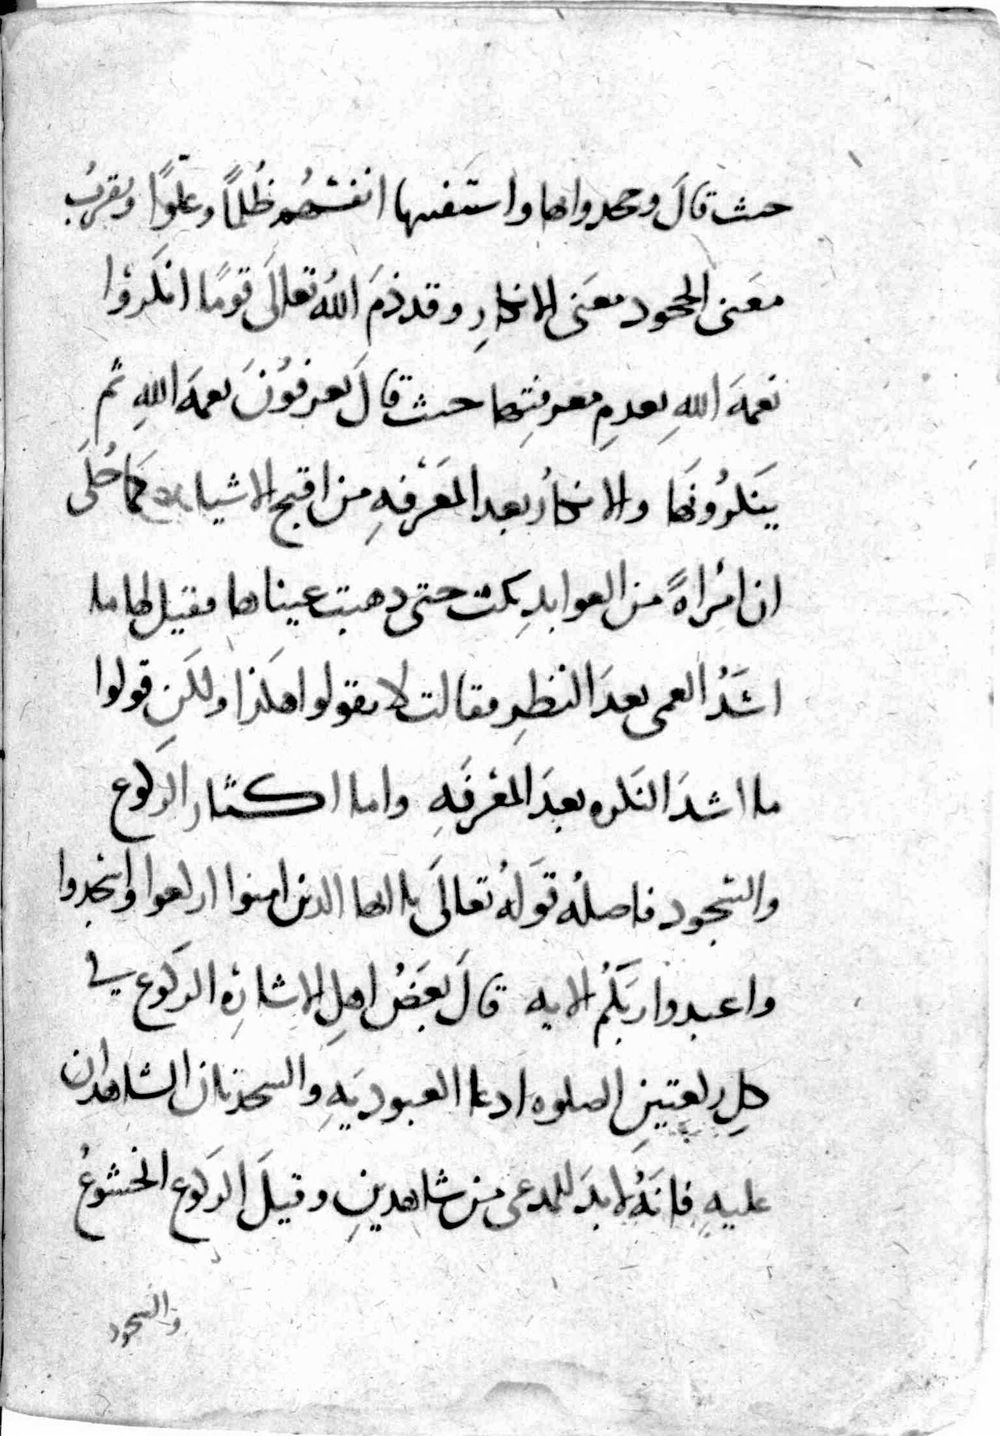 حيث قالَ وجحدوا بها واستيقنتها انفسُهُم ظُلمًا وعلوًّا ويقربُ
معَنى الجحود معَنى الانكارِ وقد ذمَ اللهُ تعالَى قومًا انكَروُا
نعمةَ اللهِ بعدمِ معرفتِها حيث قالَ يعرفوُنَ نعمةَ اللهِ ثم
ينَكرُونَها والانكارُ بعدالمَعْرفهِ من اقبح الاشياء كَما حُكَى
ان امْراةً من العوابدِ بكت حتى ذهبت عيناها فقيل لها ما
اشَدُ العمى بعدَ النظرِ فقالت لا تقولوا هكَذا ولكنِ قولوا
ما اشدَ النَكره بعدَ المعْرفَهِ واما اكثار الركَوع
والسجود فاصلهُ قوَلهُ تعالَى يا ايها الذين امنوا اركعوا واسجدوا
واعبدوا ربَكُم الايه قالَ بعَضُ اهلِ الاشارةِ الركَوع في
كلِ ركعتينِ الصلوه ادعا العبوديَهِ والسجدتان الشاهدان
عليهِ فانَهُ لابدَ للمدعى من شاهدينِ وقيلَ الركَوع الخشوعُ
والسجود